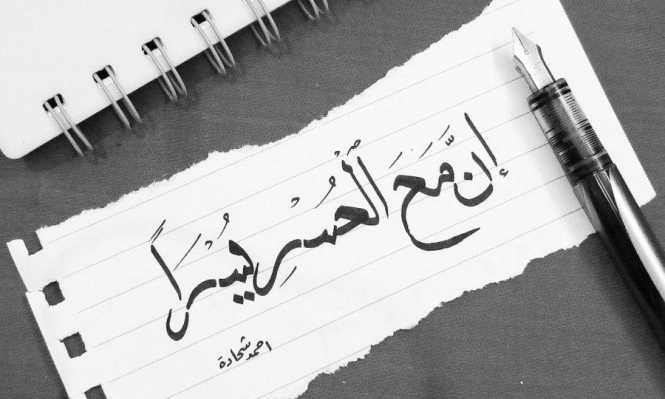 إنَّ مَعَ ٱلْعُسْرِ يُسْراً
احمد شحادة